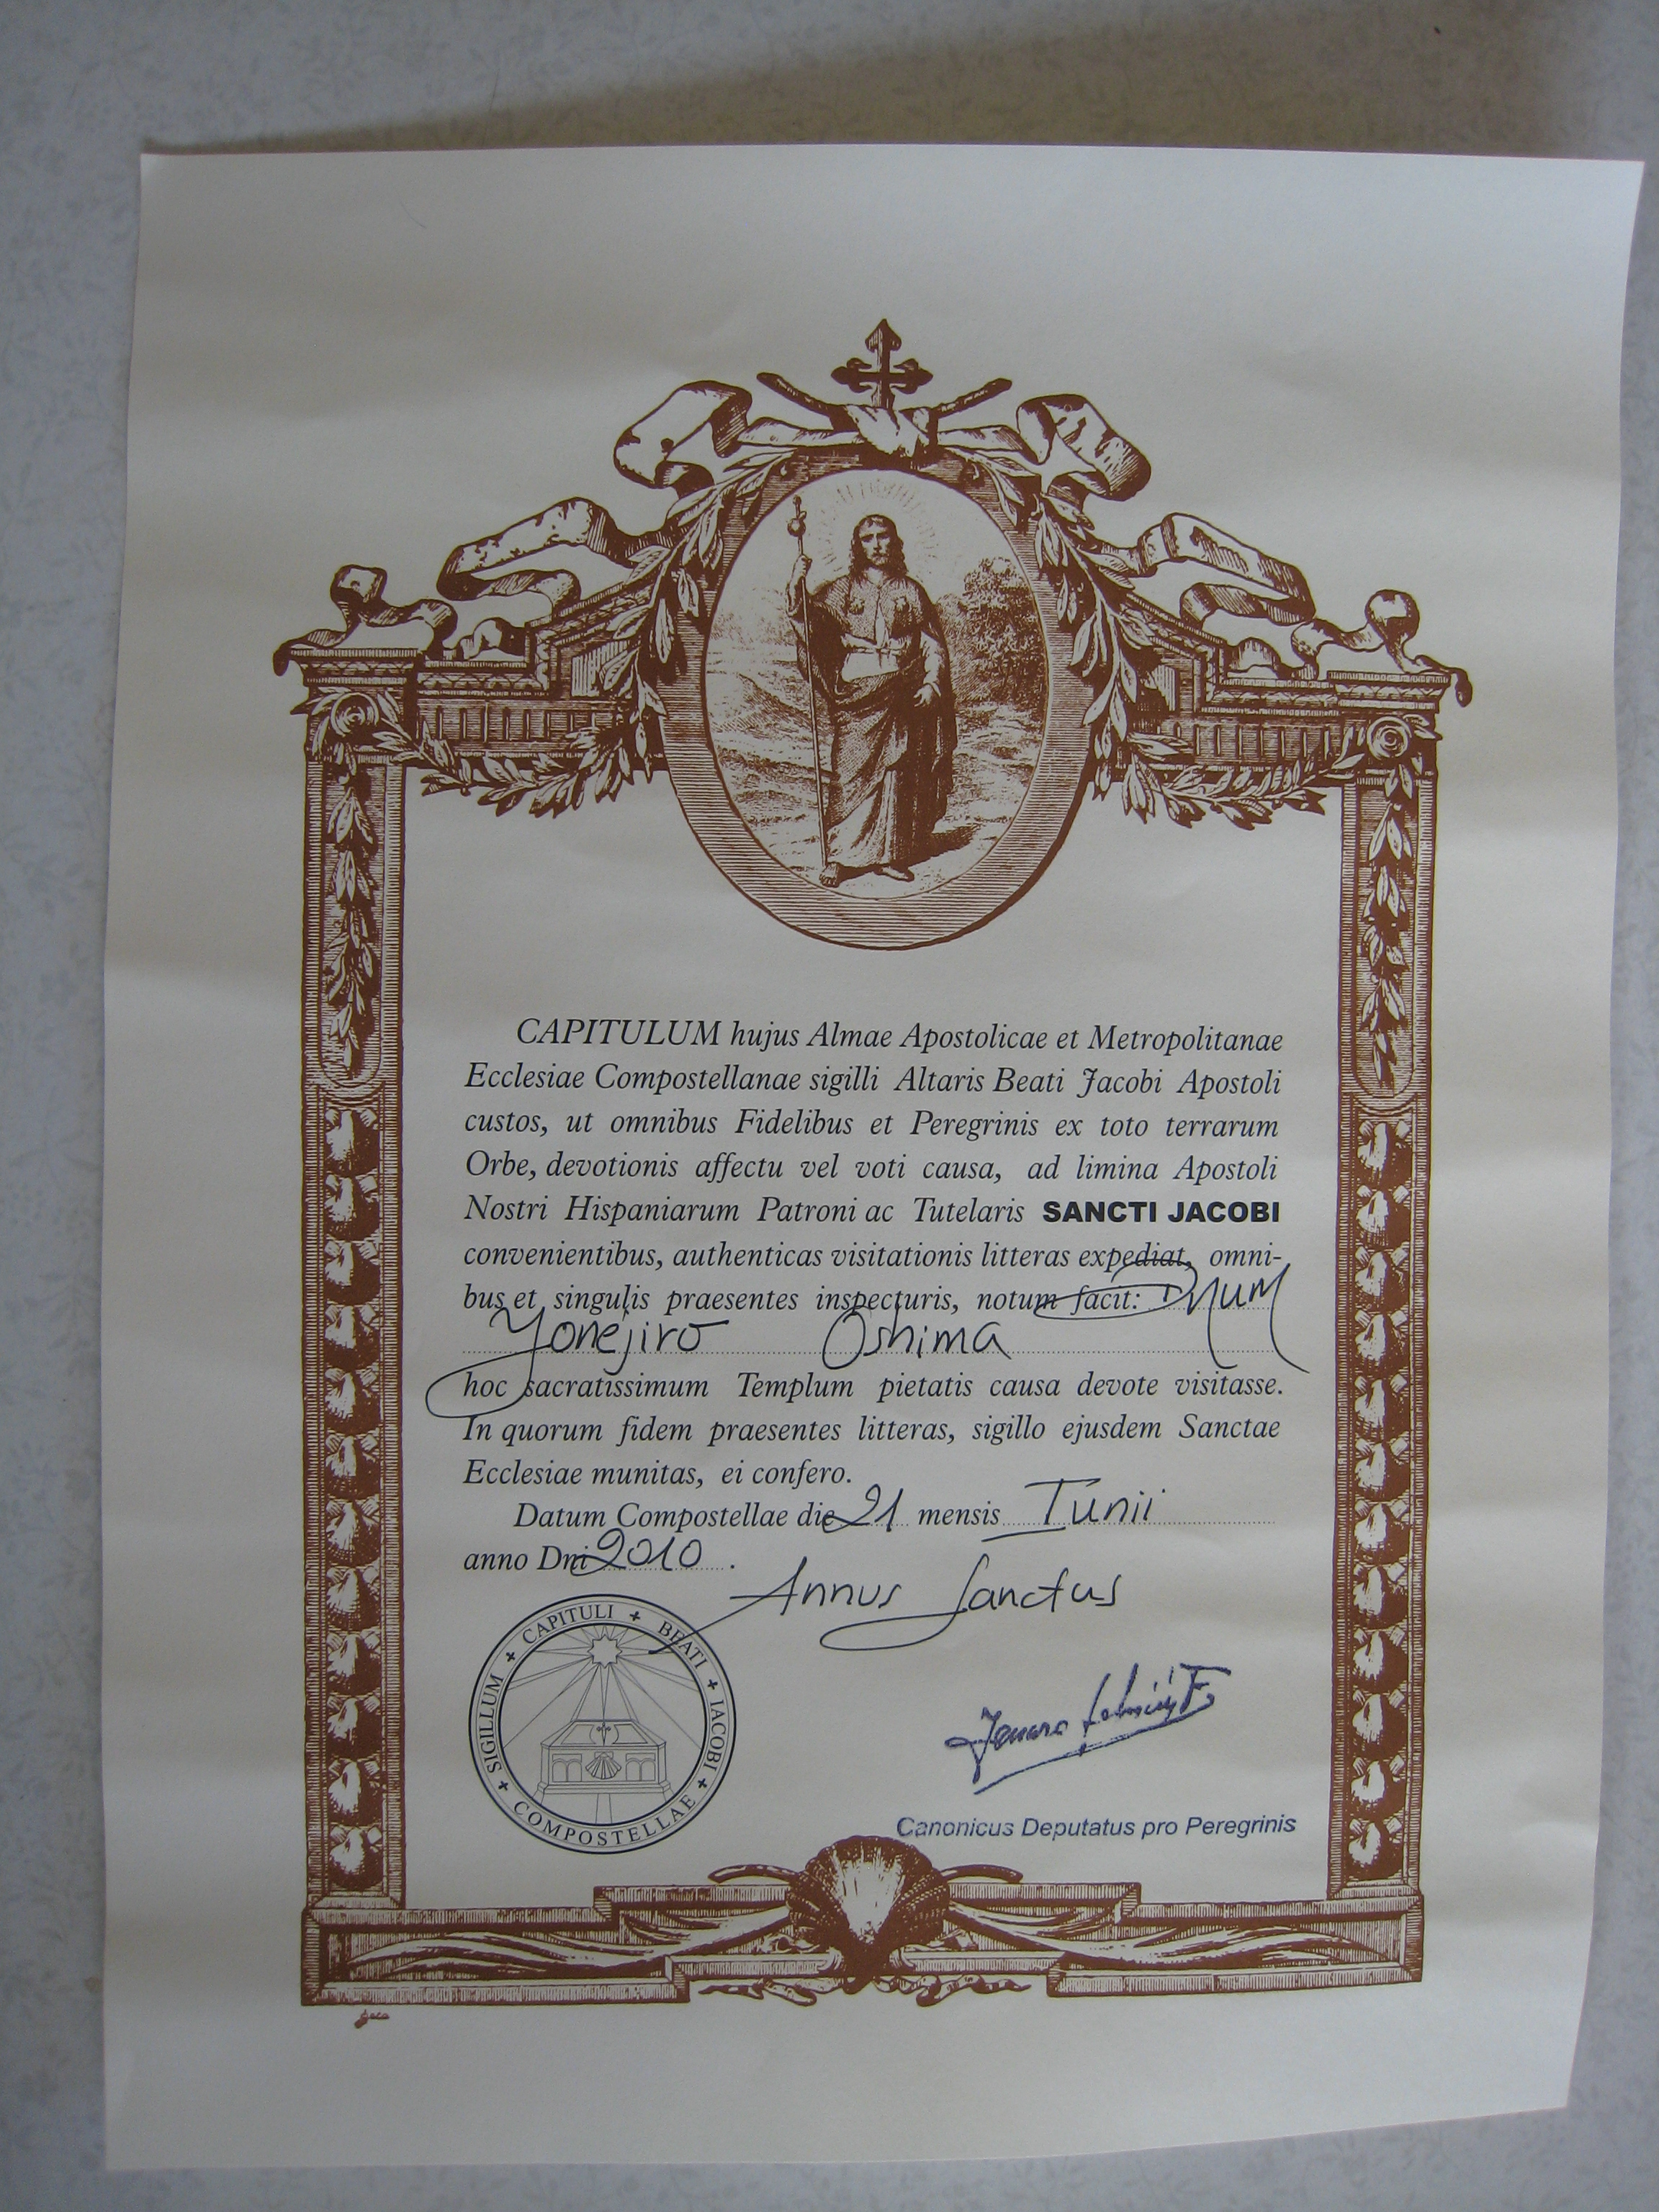 CAPITULUM hujus Almae Apostolicae et Metropolitanae
Ecclesiae Compostellanae sigilli Altaris Beati Jacobi Apostoli
custos, ut omnibus Fidelibus et Peregrinis ex toto terrarum
Orbe, devotionis affectu vel voti causa, ad limina Apostoli
Nostri Hispaniarum Patroni ac Tutelaris SANCTI JACOBI
convenientibus, authenticas visitationis litteras expediat, omni-
bus et singulis praesentes inspecturis, notum facit: Dnum
Yonejiro Oshima
hoc sacratissimum Templum pietatis causa devote visitasse.
In quorum fidem praesentes litteras, sigillo ejusdem Sanctae
Ecclesiae munitas, ei confero.
Datum Compostellae die 21 mensis Iunii
anno Dni 2010.
Annus Sanctus
SIGILLUM + CAPITULI + BEATI + IACOBI + COMPOSTELLAE +
Canonicus Deputatus pro Peregrinis